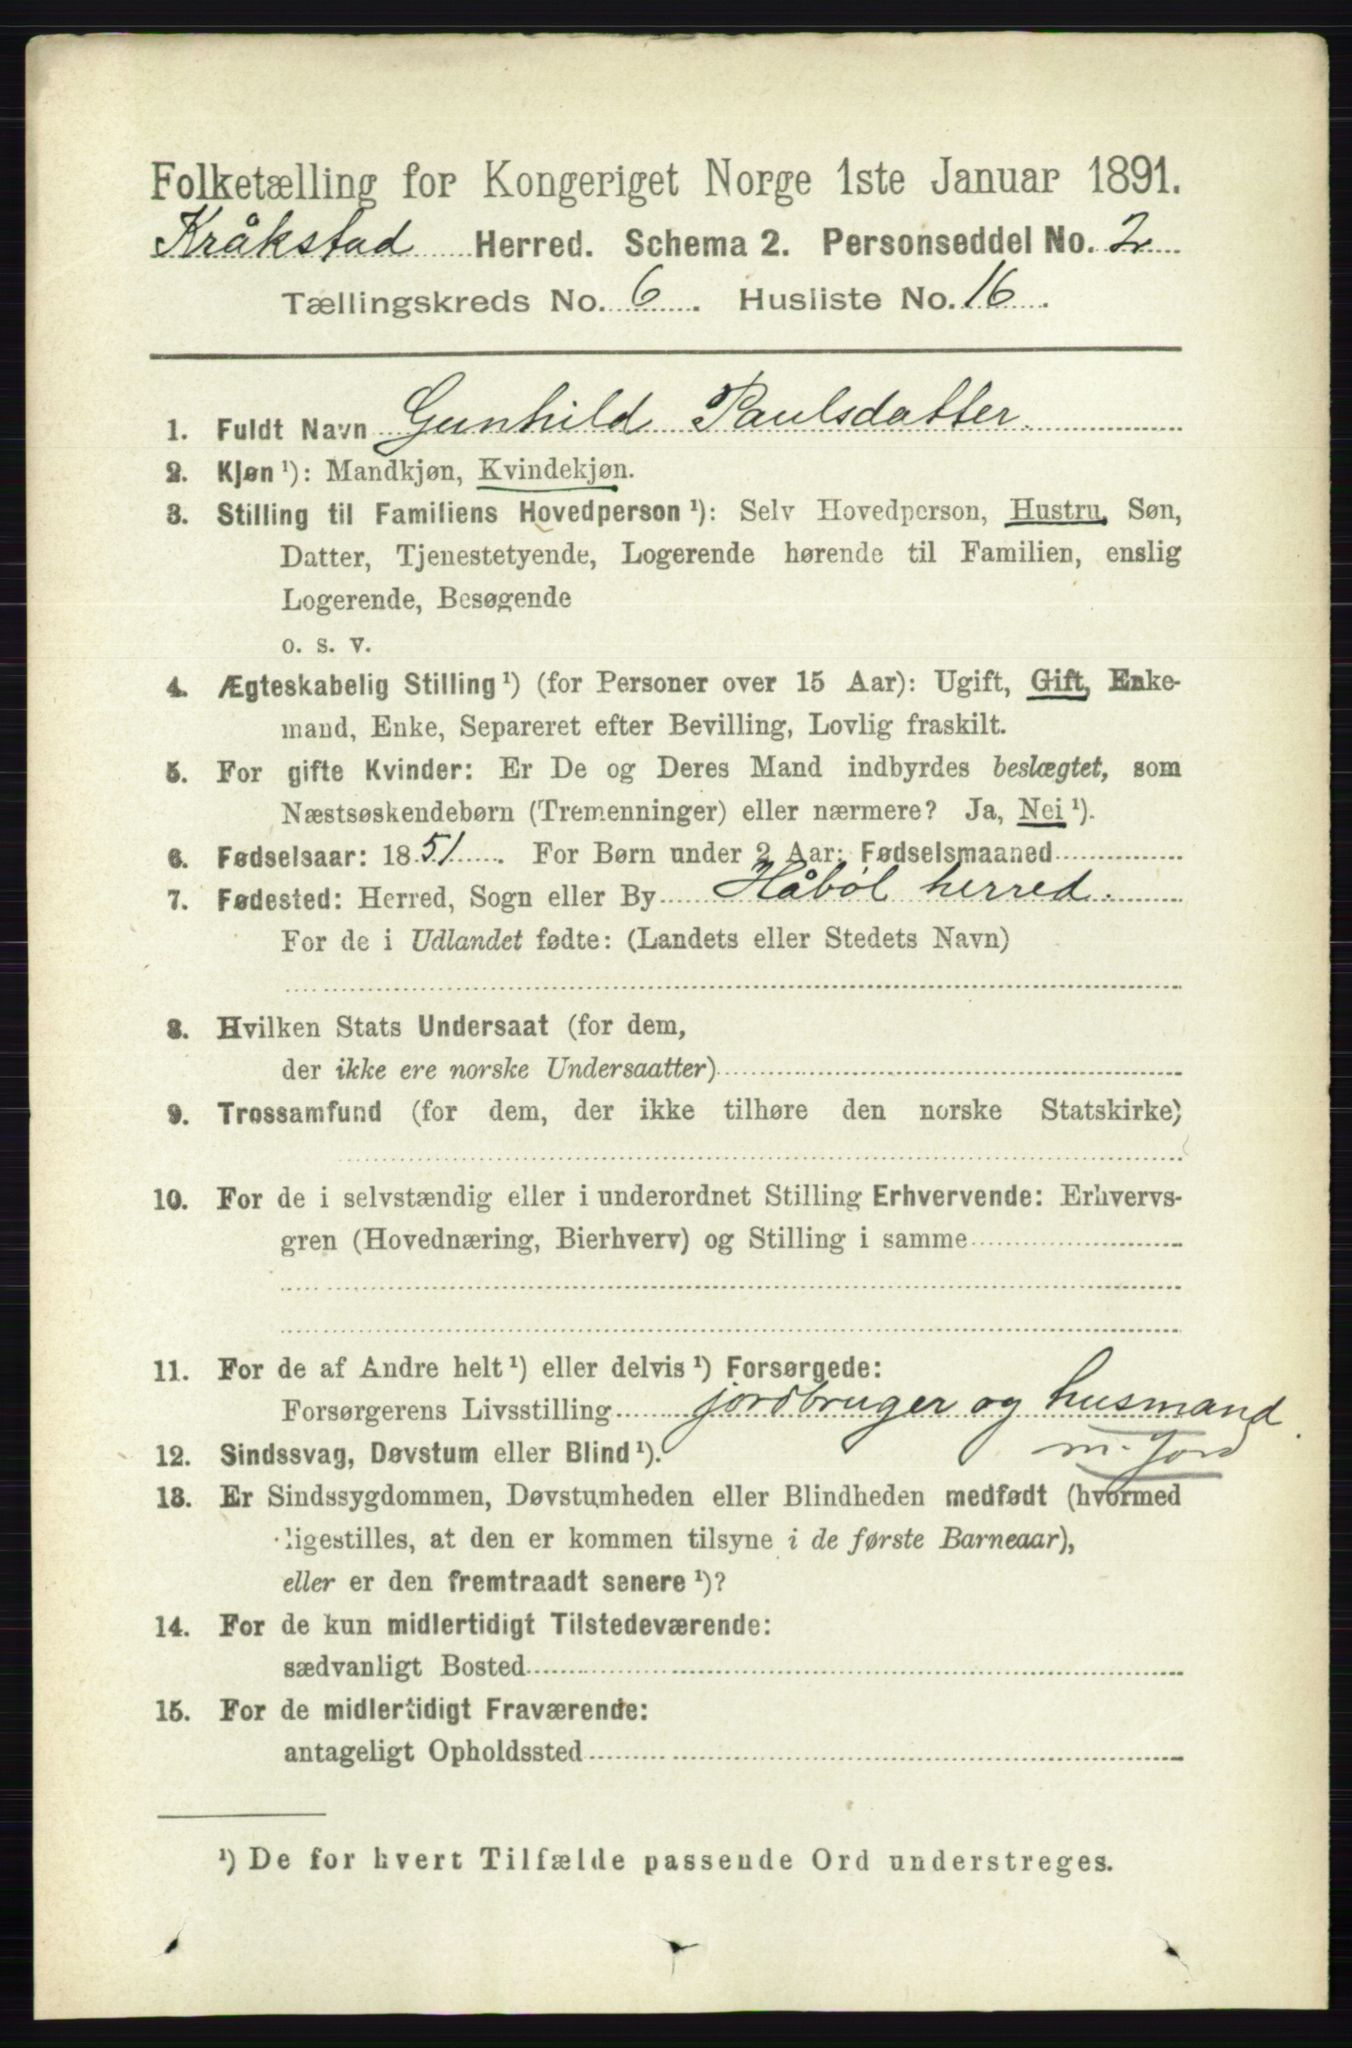 Folketælling for Kongeriget Norge 1ste Januar 1891.
Kråkstad Herred. Schema 2. Personseddel No. 2
Tællingskreds No. 6. Husliste No. 16.
1. Fuldt Navn Gunhild Paulsdatter.
2. Kjøn ¹): Mandkjøn, Kvindekjøn.
3. Stilling til Familiens Hovedperson ¹): Selv Hovedperson, Hustru, Søn,
Datter, Tjenestetyende, Logerende hørende til Familien, enslig
Logerende, Besøgende
o. s. v.
4. Ægteskabelig Stilling ¹) (for Personer over 15 Aar): Ugift, Gift, Enke-
mand, Enke, Separeret efter Bevilling, Lovlig fraskilt.
5. For gifte Kvinder: Er De og Deres Mand indbyrdes beslægtet, som
Næstsøskendebørn (Tremenninger) eller nærmere? Ja, Nei ¹).
6. Fødselsaar: 1851. For Børn under 2 Aar: Fødselsmaaned
7. Fødested: Herred, Sogn eller By Håbøl herred.
For de i Udlandet fødte: (Landets eller Stedets Navn)
8. Hvilken Stats Undersaat (for dem,
der ikke ere norske Undersaatter)
9. Trossamfund (for dem, der ikke tilhøre den norske Statskirke)
10. For de i selvstændig eller i underordnet Stilling Erhvervende: Erhvervs-
gren (Hovednæring, Bierhverv) og Stilling i samme
11. For de af Andre helt ¹) eller delvis ¹) Forsørgede:
Forsørgerens Livsstilling jordbruger og husmand
m. Jord
12. Sindssvag, Døvstum eller Blind ¹).
13. Er Sindssygdommen, Døvstumheden eller Blindheden medfødt (hvormed
ligestilles, at den er kommen tilsyne i de første Barneaar),
eller er den fremtraadt senere ¹)?
14. For de kun midlertidigt Tilstedeværende:
sædvanligt Bosted
15. For de midlertidigt Fraværende:
antageligt Opholdssted
¹) De for hvert Tilfælde passende Ord understreges.